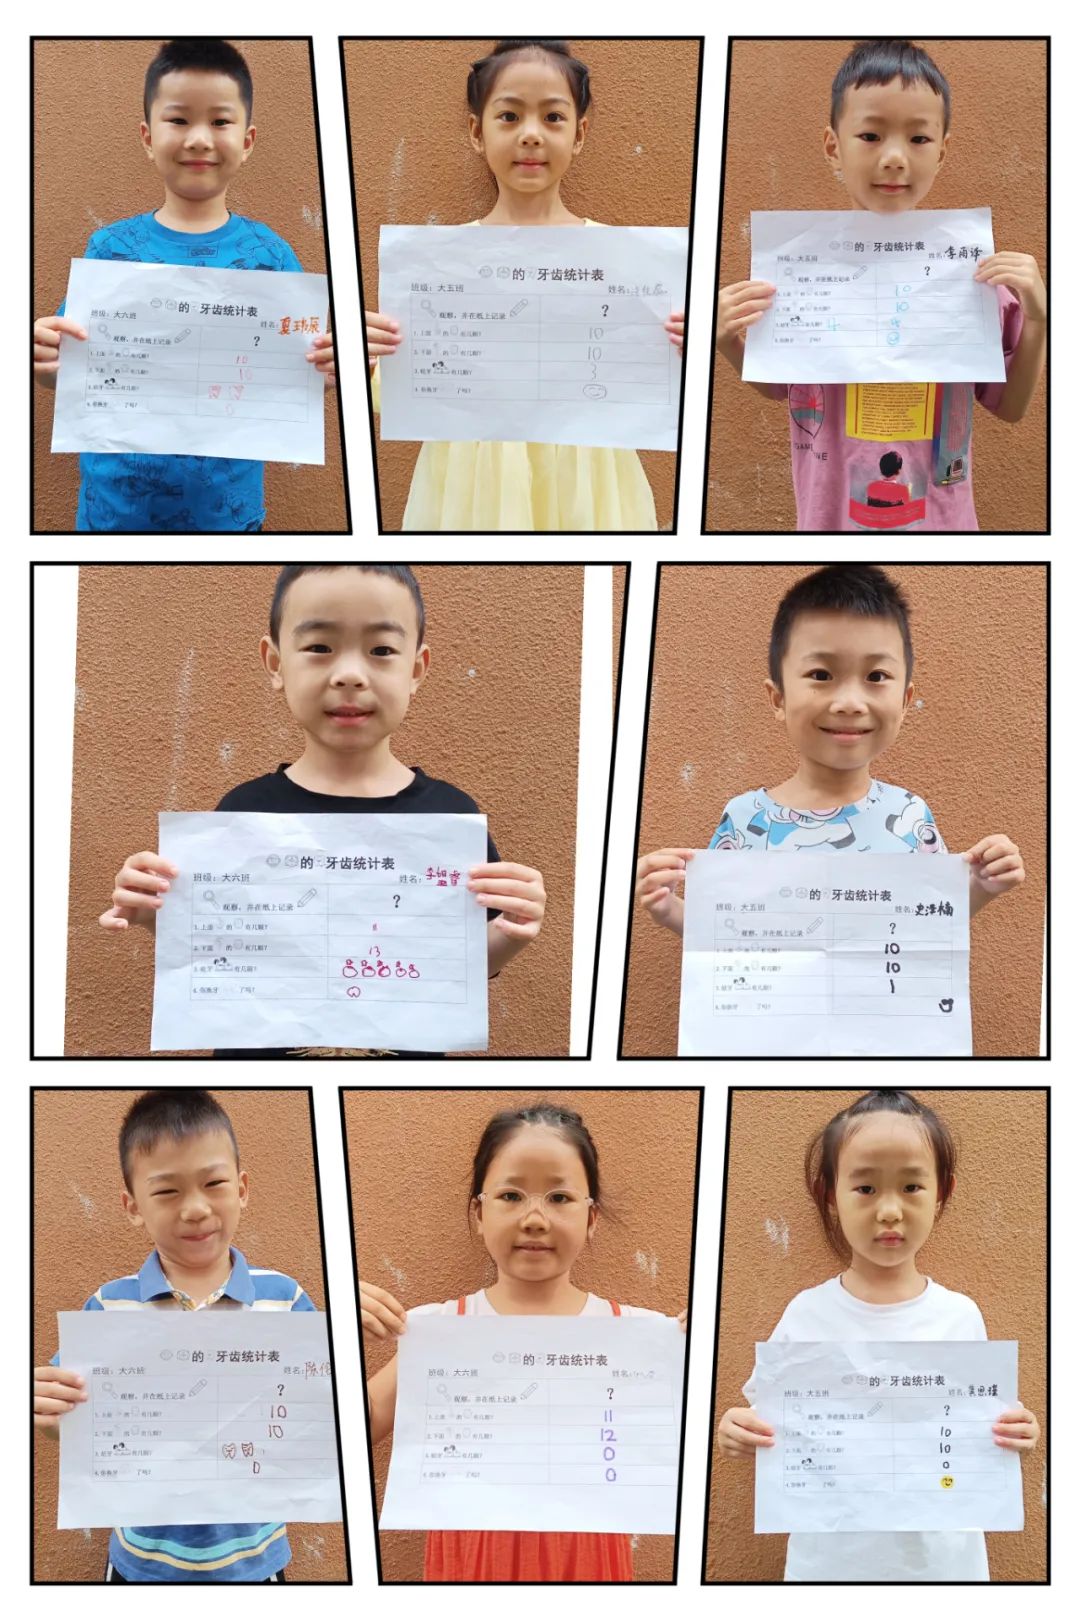 的牙齿统计表
班级：大六班 姓名：
观察，并在纸上记录 ？
1.上面 的 有几颗？ 10
2.下面 的 有几颗？ 10
3.蛀牙 有几颗？
4.你换牙 了吗？ 0
的牙齿统计表
班级：大五班 姓名：
观察，并在纸上记录 ？
1.上面 的 有几颗？ 10
2.下面 的 有几颗？ 10
3.蛀牙 有几颗？ 3
4.你换牙 了吗？
的牙齿统计表
班级：大五班 姓名：李雨泽
观察，并在纸上记录 ？
1.上面 的 有几颗？ 10
2.下面 的 有几颗？ 10
3.蛀牙 有几颗？ 4
4.你换牙 了吗？
的牙齿统计表
班级：大六班 姓名：
观察，并在纸上记录 ？
1.上面 的 有几颗？
2.下面 的 有几颗？ 13
3.蛀牙 有几颗？
4.你换牙 了吗？
的牙齿统计表
班级：大五班 姓名：史浩楠
观察，并在纸上记录 ？
1.上面 的 有几颗？ 10
2.下面 的 有几颗？ 10
3.蛀牙 有几颗？ 1
4.你换牙 了吗？
的牙齿统计表
班级：大六班 姓名：陈
观察，并在纸上记录 ？
1.上面 的 有几颗？ 10
2.下面 的 有几颗？ 10
3.蛀牙 有几颗？
4.你换牙 了吗？ 0
的牙齿统计表
班级：大六班 姓名：
观察，并在纸上记录 ？
1.上面 的 有几颗？ 11
2.下面 的 有几颗？ 12
3.蛀牙 有几颗？ 0
4.你换牙 了吗？ 0
的牙齿统计表
班级：大五班 姓名：黄思瑾
观察，并在纸上记录 ？
1.上面 的 有几颗？ 10
2.下面 的 有几颗？ 10
3.蛀牙 有几颗？ 0
4.你换牙 了吗？